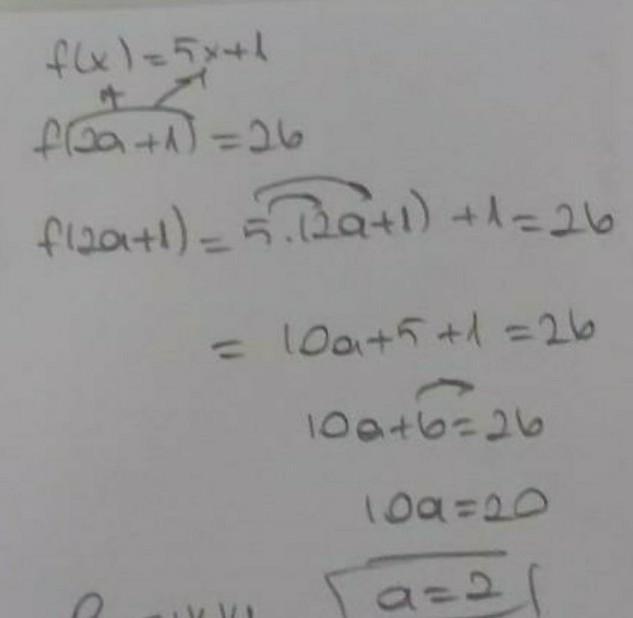 f(x) = 5x+1
f(2a+1) = 26
f(2a+1) = 5.(2a+1) +1 = 26
= 10a+5+1 = 26
10a+6 = 26
10a = 20
a = 2